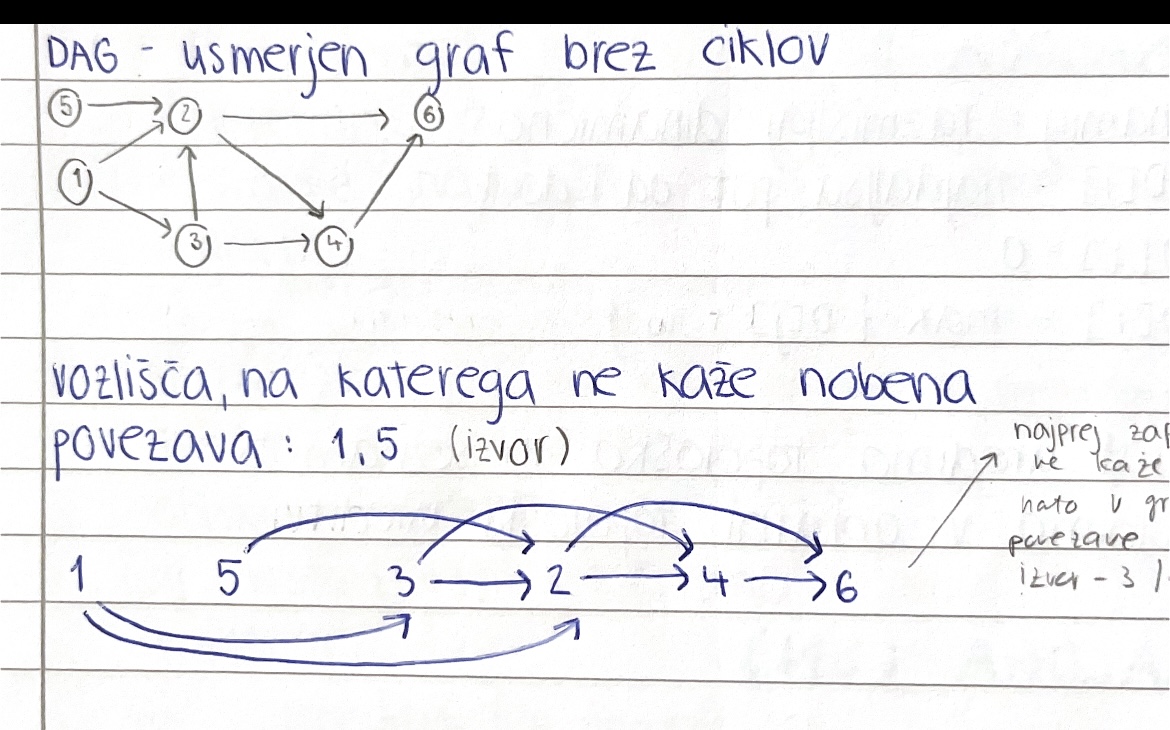 DAG - usmerjen graf brez ciklov
5 2 6
1
3 4
vozlišča, na katerega ne kaže nobena
povezava : 1,5 (izvor)
najprej
ne kaže
nato v
povezave
izvor - 3
1 5 3 2 4 6